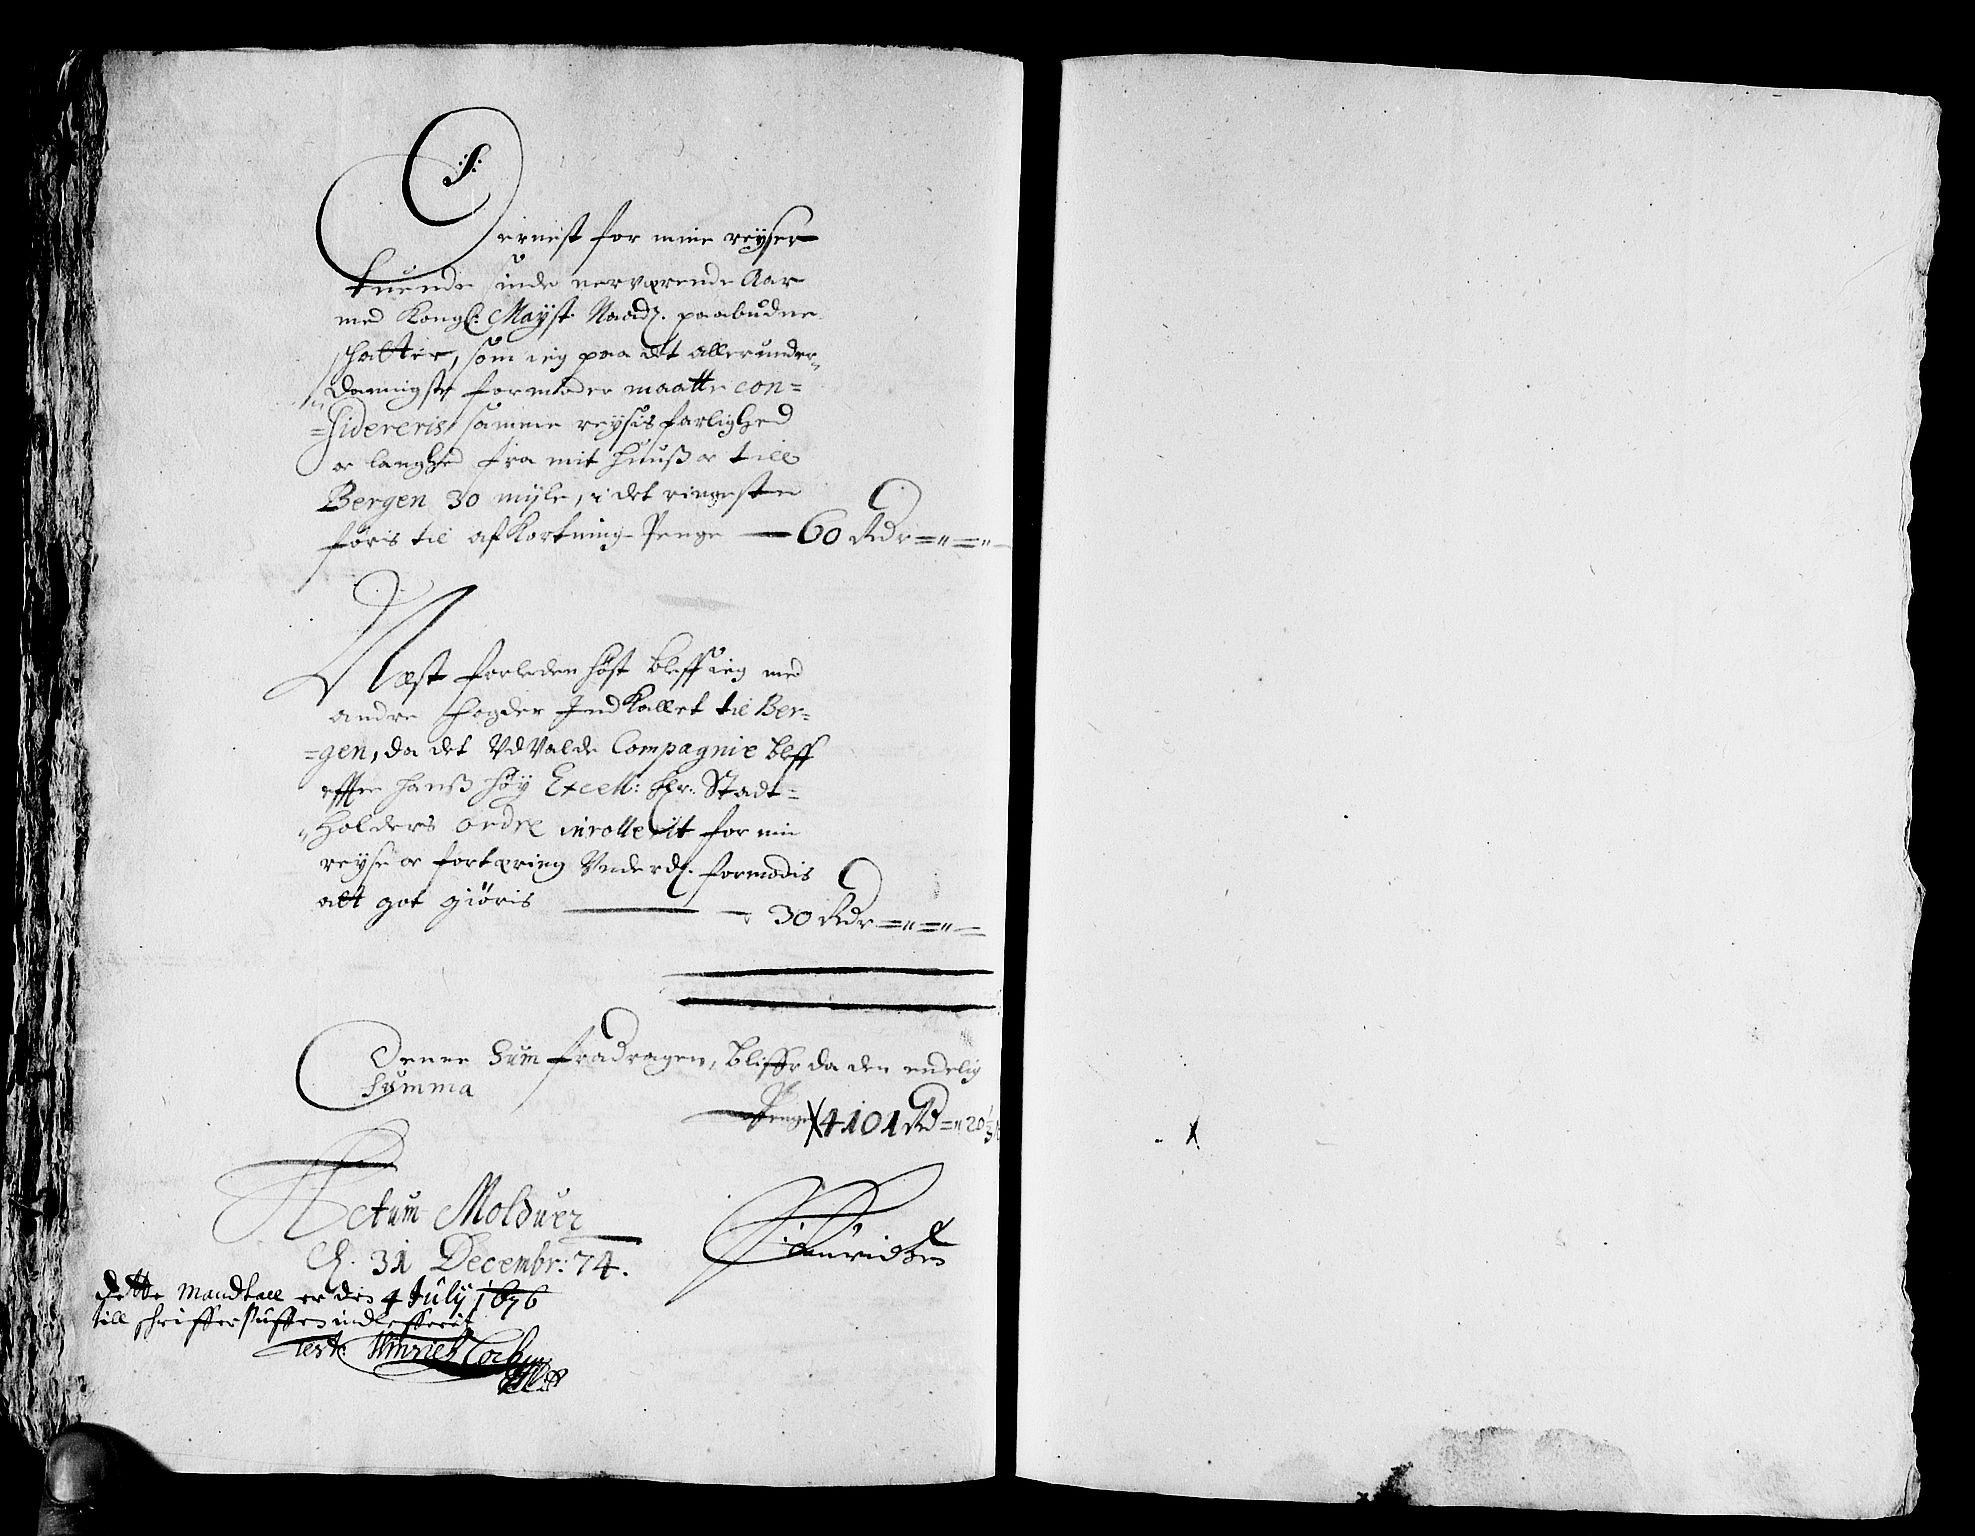 :S:
Dernest for mine reyser
tuende sinde nerværende Aar
med Kongl: Mayst Naadl. paabudne
schatter, som ieg paa det allerunder-
danigste formoder maatte con=
=sidereris samme reysis farlighed
oc langhed fra mit Huuß oc till
Bergen 30 myle, i det ringeste
føris til afkortning Penge — 60 Rdr = " = " —
Næst forleden Høst bleff ieg med
andre Fogder Indkallet til Ber=
=gen, da det Vdvalde Compagnie bleff
effter Hanß Høy Excell: Hr: Stadt=
Holders ordre inrollerit for min
reyse oc fortæring Vnderdl. formodis
alt got giøris — 30 Rdr = " = " —
Denne Sum fradragen, bliffr da den endelig
Summa
Penge 4101 Rd = " 20 1/3
Actum Molduer
d. 31 Decembr: 74.
Dette Mandtall er den 4 July 1676
till schriffer stuffen indleffverit
Test: Hinrich